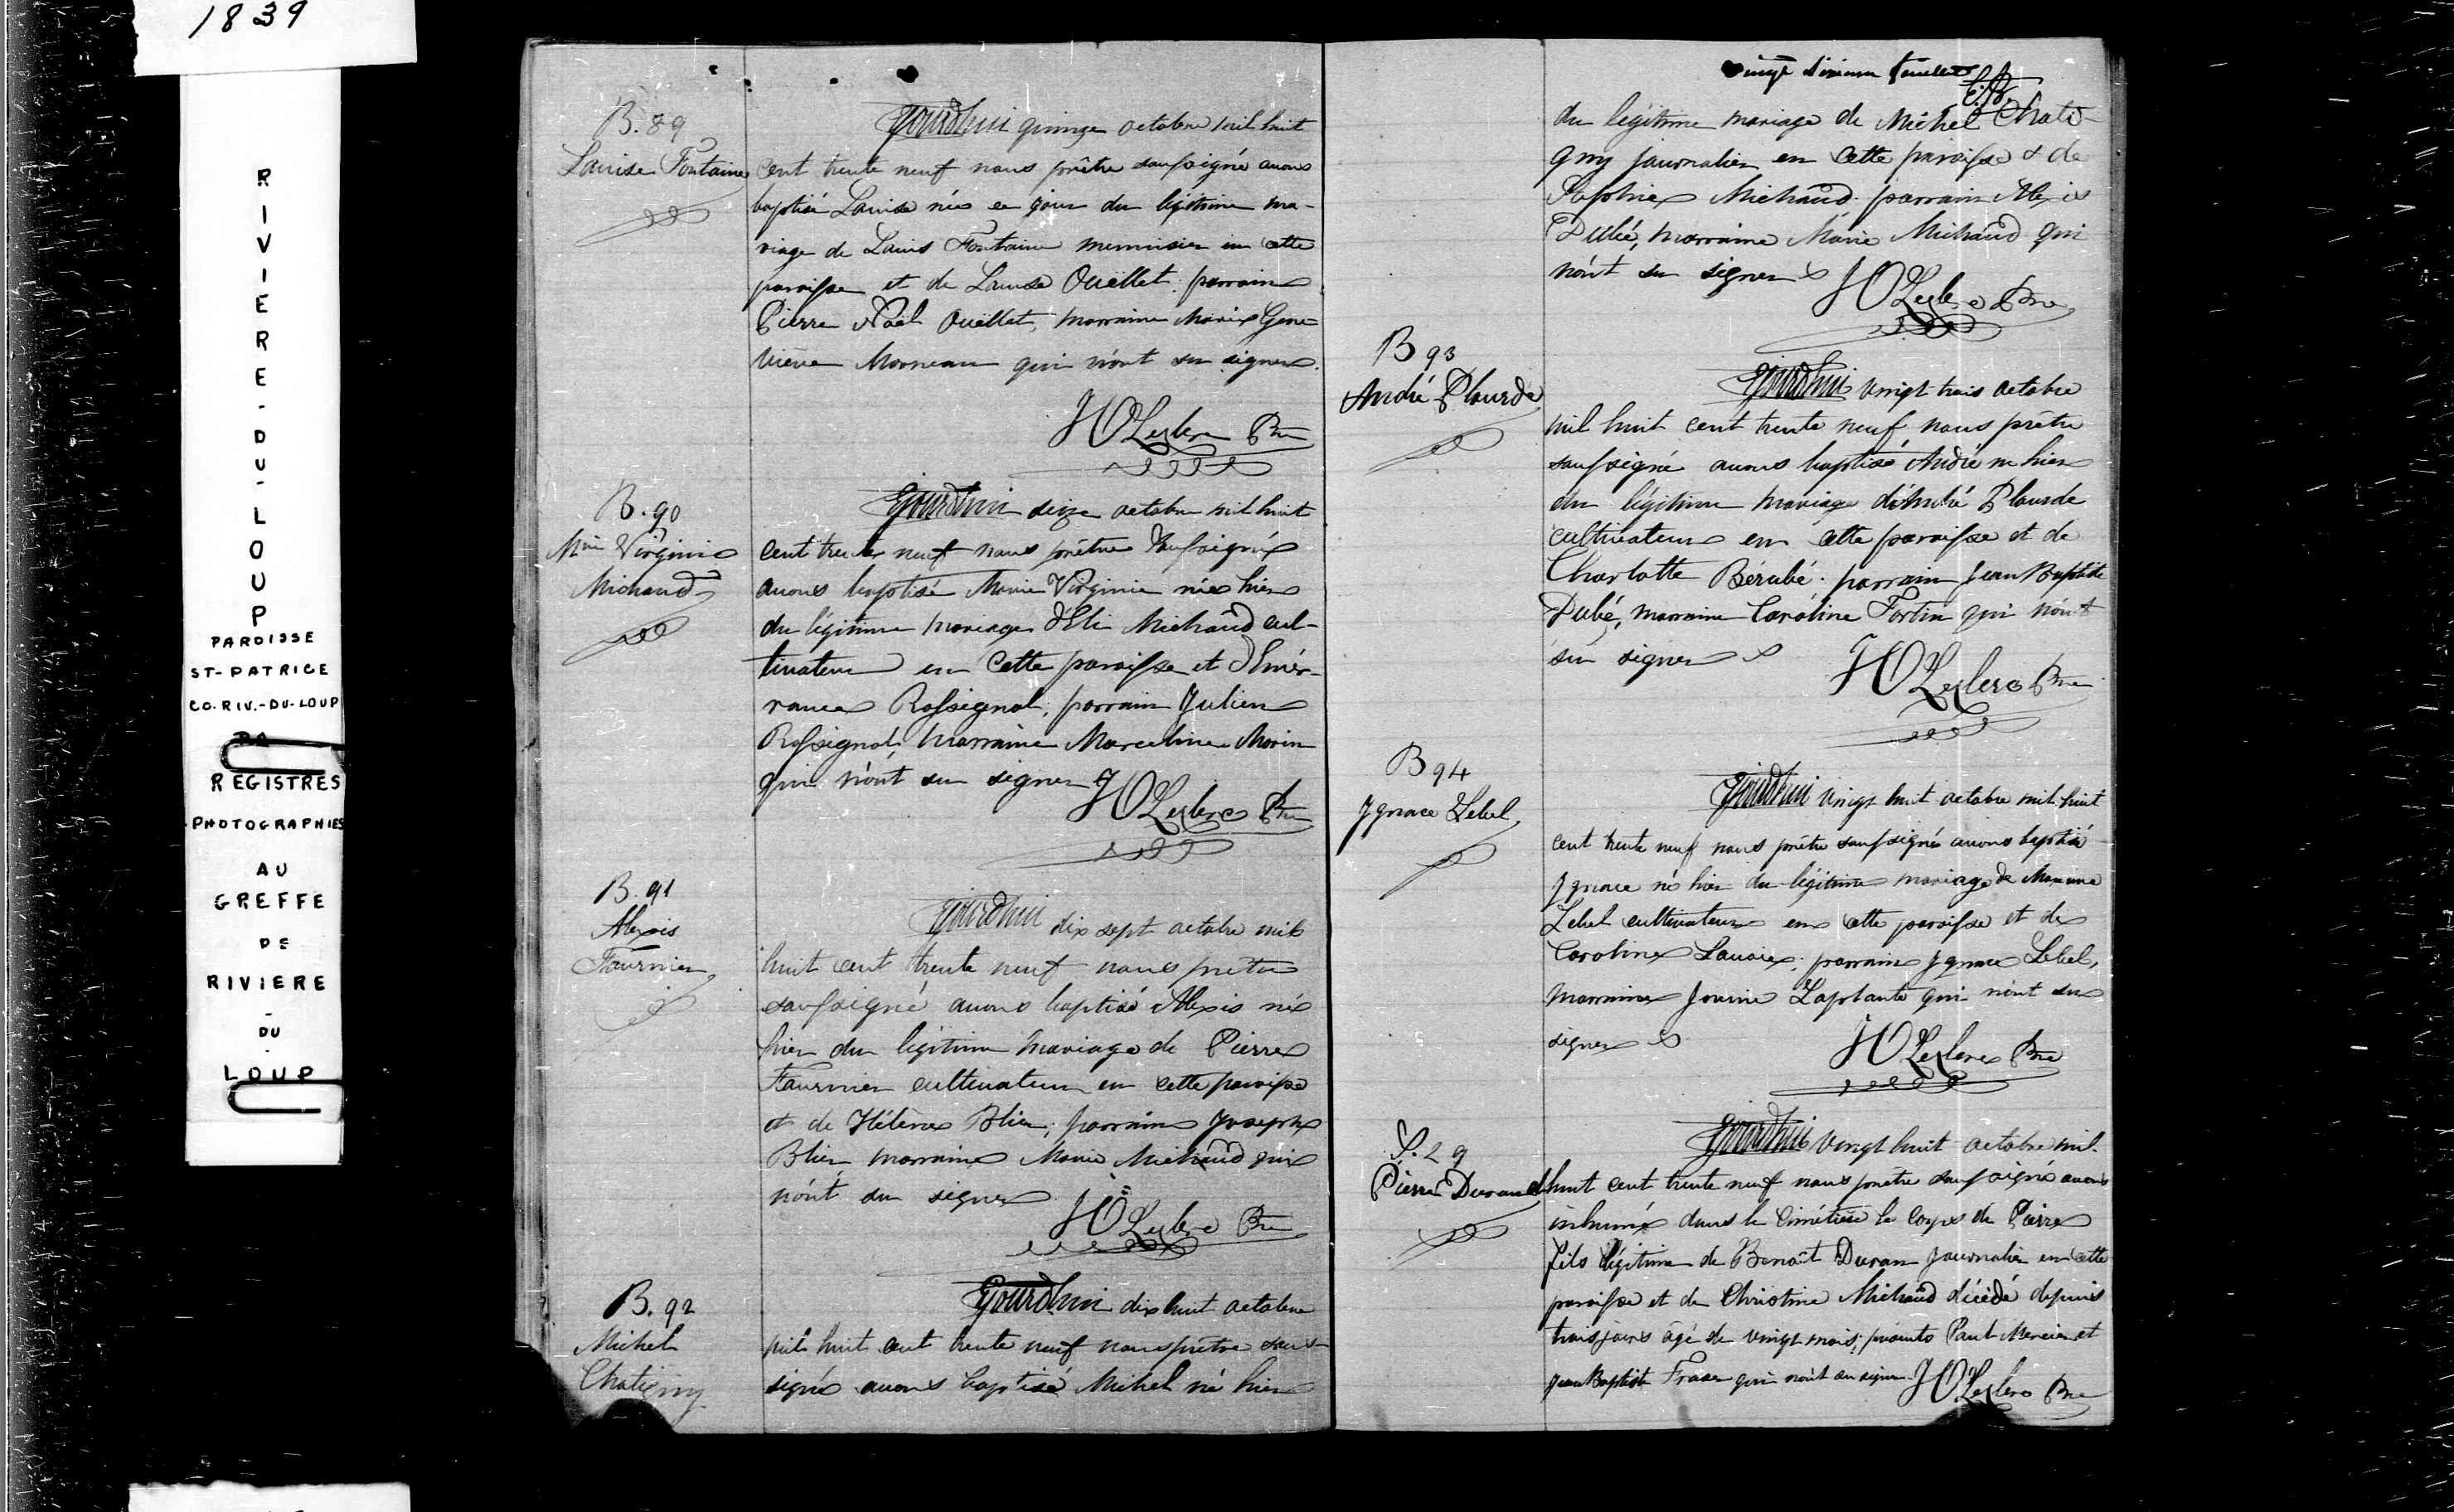 1839
RIVIERE-DU-LOUP
PAROISSE
ST-PATRICE
CO. RIV.-DU-LOUP
REGISTRES
PHOTOGRAPHIES
AU
GREFFE
DE
RIVIERE
-
DU
-
LOUP
B. 89
Louise Fontaine
Ajourdhui quinze octobre mil huit
cent trente neuf nous prêtre soussigné avons
baptisé Louise née ce jour du légitime ma-
riage de Louis Fontaine menuisier en cette
paroisse et de Louise Ouellet. parrain
Pierre Noël Ouellet, marraine Marie Gene-
viève Morneau qui n'ont su signer.
JO Leclerc Ptre
B. 90
Mie Virginie
Michaud
Ajourdhui seize octobre mil huit
cent trente neuf nous prêtre soussigné
avons baptisé Marie Virginie née hier
du légitime mariage d'Eli Michaud cul-
tivateur en cette paroisse et d'Emé-
rance Rossignol, parrain Julien
Rossignol, marraine Marceline Morin
qui n'ont su signer
JO Leclerc Ptre
B. 91
Alexis
Fournier
Ajourdhui dix sept octobre mil
huit cent trente neuf nous prêtre
soussigné avons baptisé Alexis né
hier du légitime mariage de Pierre
Fournier cultivateur en cette paroisse
et de Hélène Blier, parrain Joseph
Blier marraine Marie Michaud qui
n'ont su signer
JO Leclerc Ptre
B. 92
Michel
Chatigny
Ajourdhui dix huit octobre
mil huit cent trente neuf nous prêtre sous-
signé avons baptisé Michel né hier
vingt sixieme feuillet
du légitime mariage de Michel Chati-
gny journalier en cette paroisse & de
Sophie Michaud. parrain Alexis
Dubé, marraine Marie Michaud qui
n'ont su signer
JO Leclerc Ptre
B 93
André Plourde
Ajourdhui vingt trois octobre
mil huit cent trente neuf nous prêtre
soussigné avons baptisé André né hier
du légitime mariage d'André Plourde
cultivateur en cette paroisse et de
Charlotte Bérubé. parrain Jean Baptiste
Dubé, marraine Caroline Fortin qui n'ont
su signer
JO Leclerc Ptre
B 94
Ignace Lebel
Ajourdhui vingt huit octobre mil huit
cent trente neuf nous prêtre soussigné avons baptisé
Ignace né hier du légitime mariage de Maxime
Lebel cultivateur en cette paroisse et de
Caroline Lavoie, parrain Ignace Lebel,
marraine Laplante qui n'ont su
signer
JO Leclerc Ptre
S. 29
Pierre Durand
Ajourdhui vingt huit octobre mil
huit cent trente neuf nous prêtre soussigné avons
inhumé dans le cimetière le corps de Pierre
fils légitime de Benoît Duran journalier en cette
paroisse et de Christine Michaud décédé depuis
trois jours âgé de vingt mois, présents Paul Mercier et
Jean Baptiste Fraser qui n'ont su signer
JO Leclerc Ptre